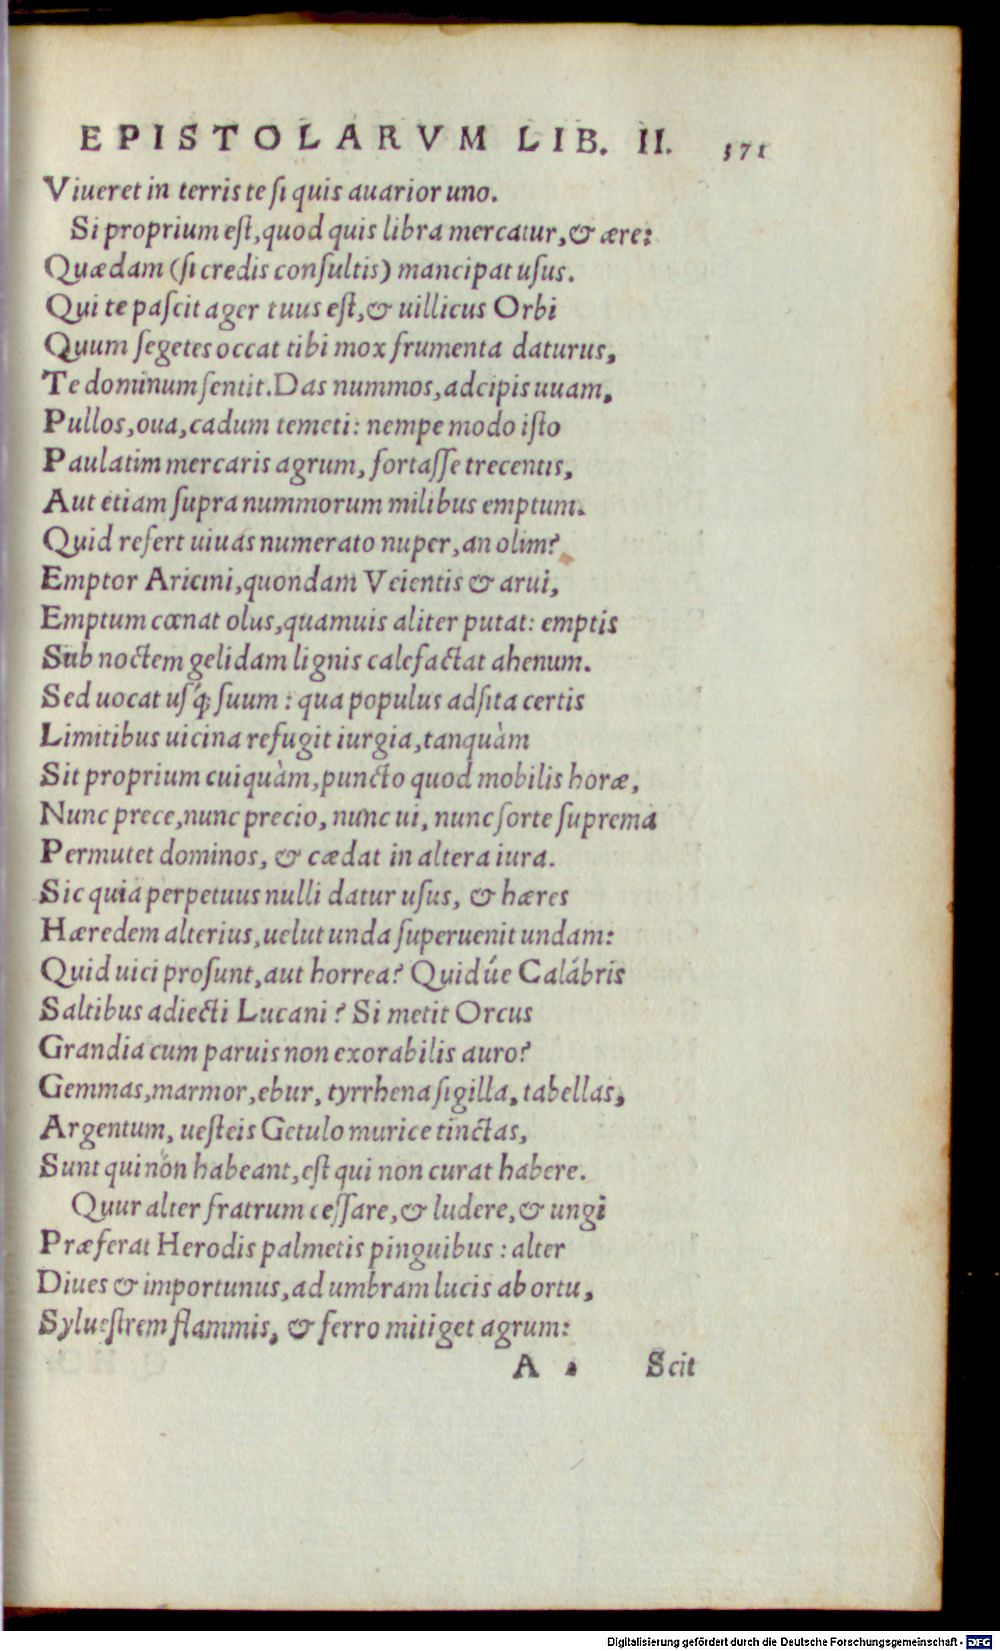 EPISTOLARVM LIB. II. 371
Viueret in terris te ſi quis auarior uno.
Si proprium eſt, quod quis libra mercatur, & ære:
Quædam (ſi credis conſultis) mancipat uſus.
Qui te paſcit ager tuus eſt, & uillicus Orbi
Quum ſegetes occat tibi mox frumenta daturus,
Te dominum ſentit. Das nummos, adcipis uuam,
Pullos, oua, cadum temeti: nempe modo iſto
Paulatim mercaris agrum, fortaſſe trecentis,
Aut etiam ſupra nummorum milibus emptum.
Quid refert uiuas numerato nuper, an olim?
Emptor Aricini, quondam Veientis & arui,
Emptum cœnat olus, quamuis aliter putat: emptis
Sub noctem gelidam lignis calefactat ahenum.
Sed uocat uſq́; ſuum: qua populus adſita certis
Limitibus uicina refugit iurgia, tanquàm
Sit proprium cuiquàm, puncto quod mobilis horæ,
Nunc prece, nunc precio, nunc ui, nunc ſorte ſuprema
Permutet dominos, & cædat in altera iura.
Sic quia perpetuus nulli datur uſus, & hæres
Hæredem alterius, uelut unda ſuperuenit undam:
Quid uici proſunt, aut horrea? Quid úe Calábris
Saltibus adiecti Lucani? Si metit Orcus
Grandia cum paruis non exorabilis auro?
Gemmas, marmor, ebur, tyrrhena ſigilla, tabellas,
Argentum, ueſteis Getulo murice tinctas,
Sunt qui non habeant, eſt qui non curat habere.
Quur alter fratrum ceſſare, & ludere, & ungi
Præferat Herodis palmetis pinguibus: alter
Diues & importunus, ad umbram lucis ab ortu,
Sylueſtrem flammis, & ferro mitiget agrum:
A Scit
Digitalisierung gefördert durch die Deutsche Forschungsgemeinschaft - DFG